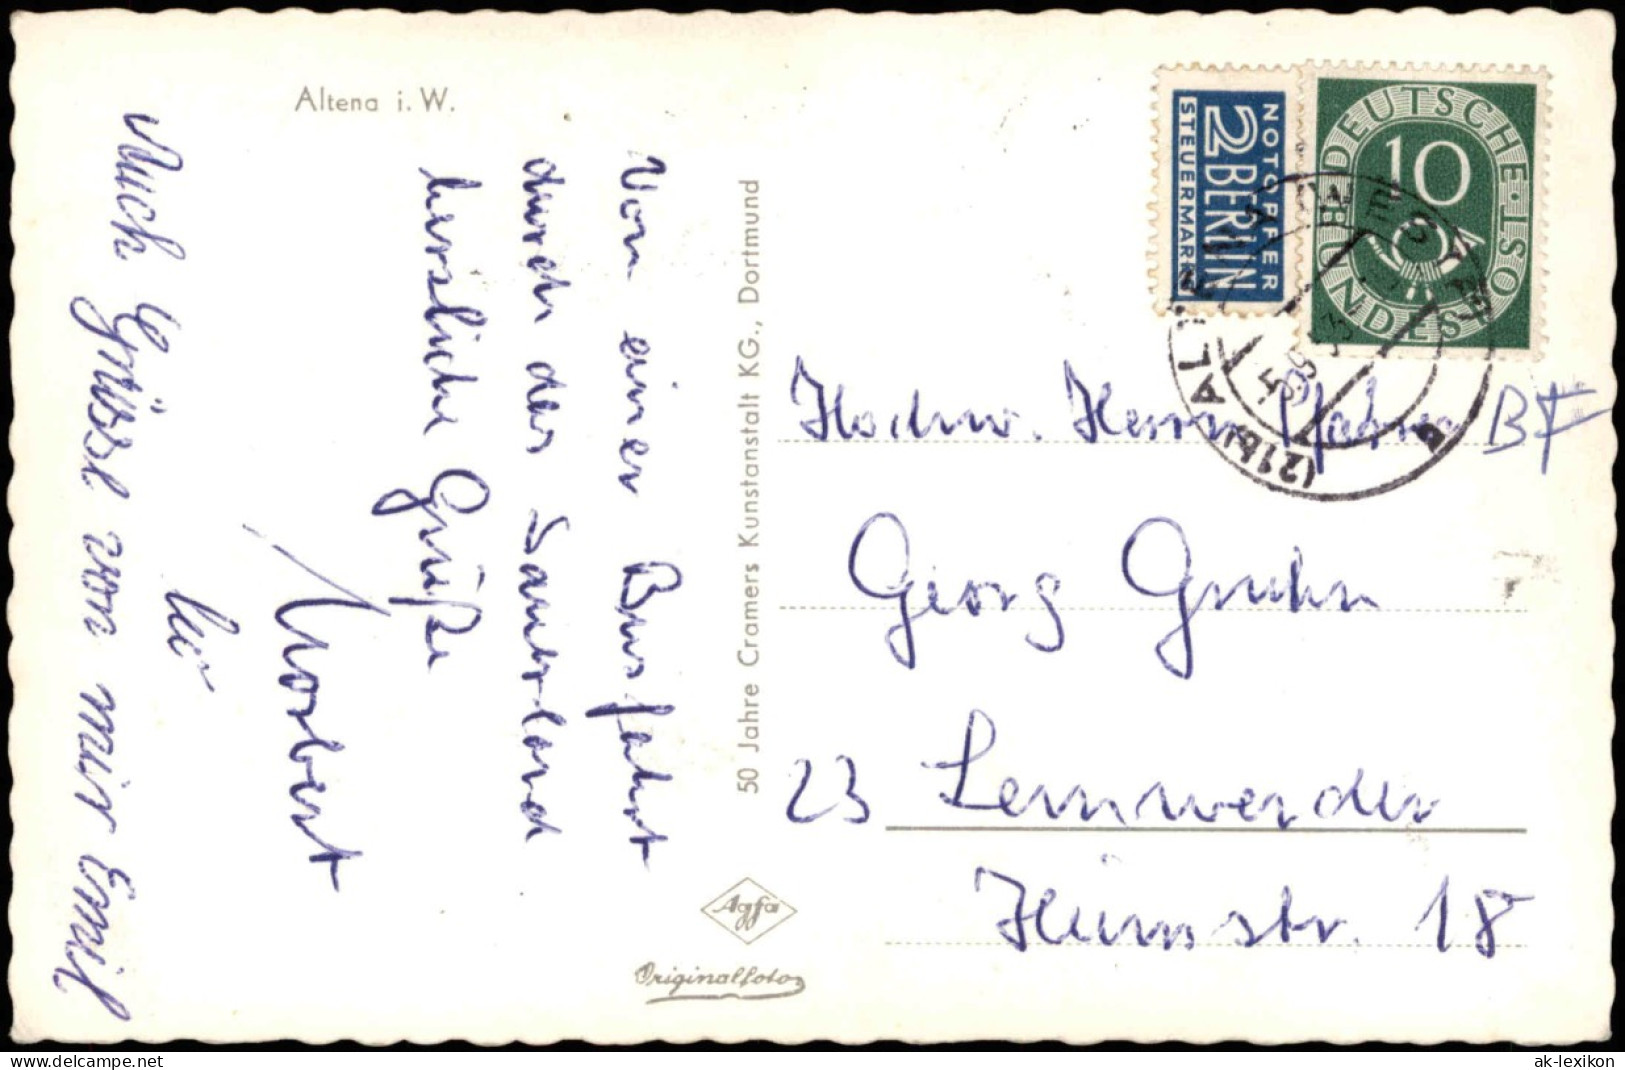 Altena i. W.
Von einer Busfahrt
durch das Sauerland
herzliche Grüße
Norbert
Auch Grüße von mir Emil
50 Jahre Cramers Kunstanstalt KG., Dortmund
Agfa
Originalfoto
NOTOPFER
2 BERLIN
STEUERMARKE
DEUTSCHE · BUNDESPOST
10
(21b) ALTENA (WESTF)
Hochw. Herrn
Georg Gruhn
23 Lemwerder
18
delcampe.net
ak-lexikon